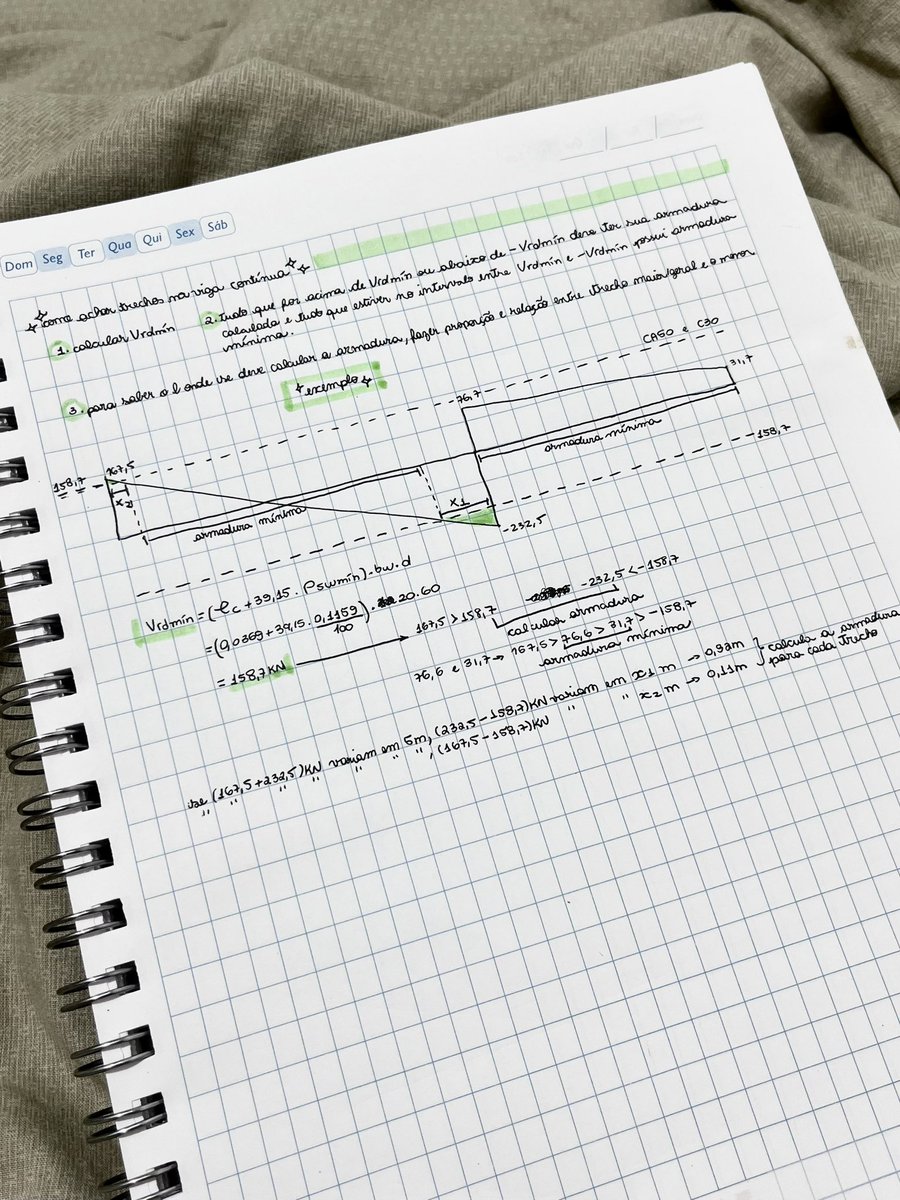 Dom Seg Ter Qua Qui Sex Sáb
como achar trechos na viga contínua
1. calcular Vrdmín
2. tudo que for acima de Vrdmín ou abaixo de -Vrdmín deve ter sua armadura
calculada e tudo que estiver no intervalo entre Vrdmín e -Vrdmín possui armadura
mínima.
3. para saber o l onde se deve calcular a armadura, fazer proporção e relação entre trecho maior/geral e o menor
exemplo
CA50 e C30
158,7
167,5
-76,7
31,7
x2
armadura mínima
x1
armadura mínima
-158,7
-232,5
Vrdmín = (ƭc + 39,15 . ρswmín) . bw . d
= (0,0869 + 39,15 . 0,1159/100) . 20 . 60
= 158,7 KN → 167,5 > 158,7 -232,5 < -158,7
calcular armadura
76,6 e 31,7 → 167,5 > 76,6 > 31,7 > -158,7
armadura mínima
se (167,5 + 232,5) KN variam em 5m, (232,5 - 158,7) KN variam em x1 m → 0,92m
" " " " " " " , (167,5 - 158,7) KN " " x2 m → 0,11m
calcula a armadura
para cada trecho